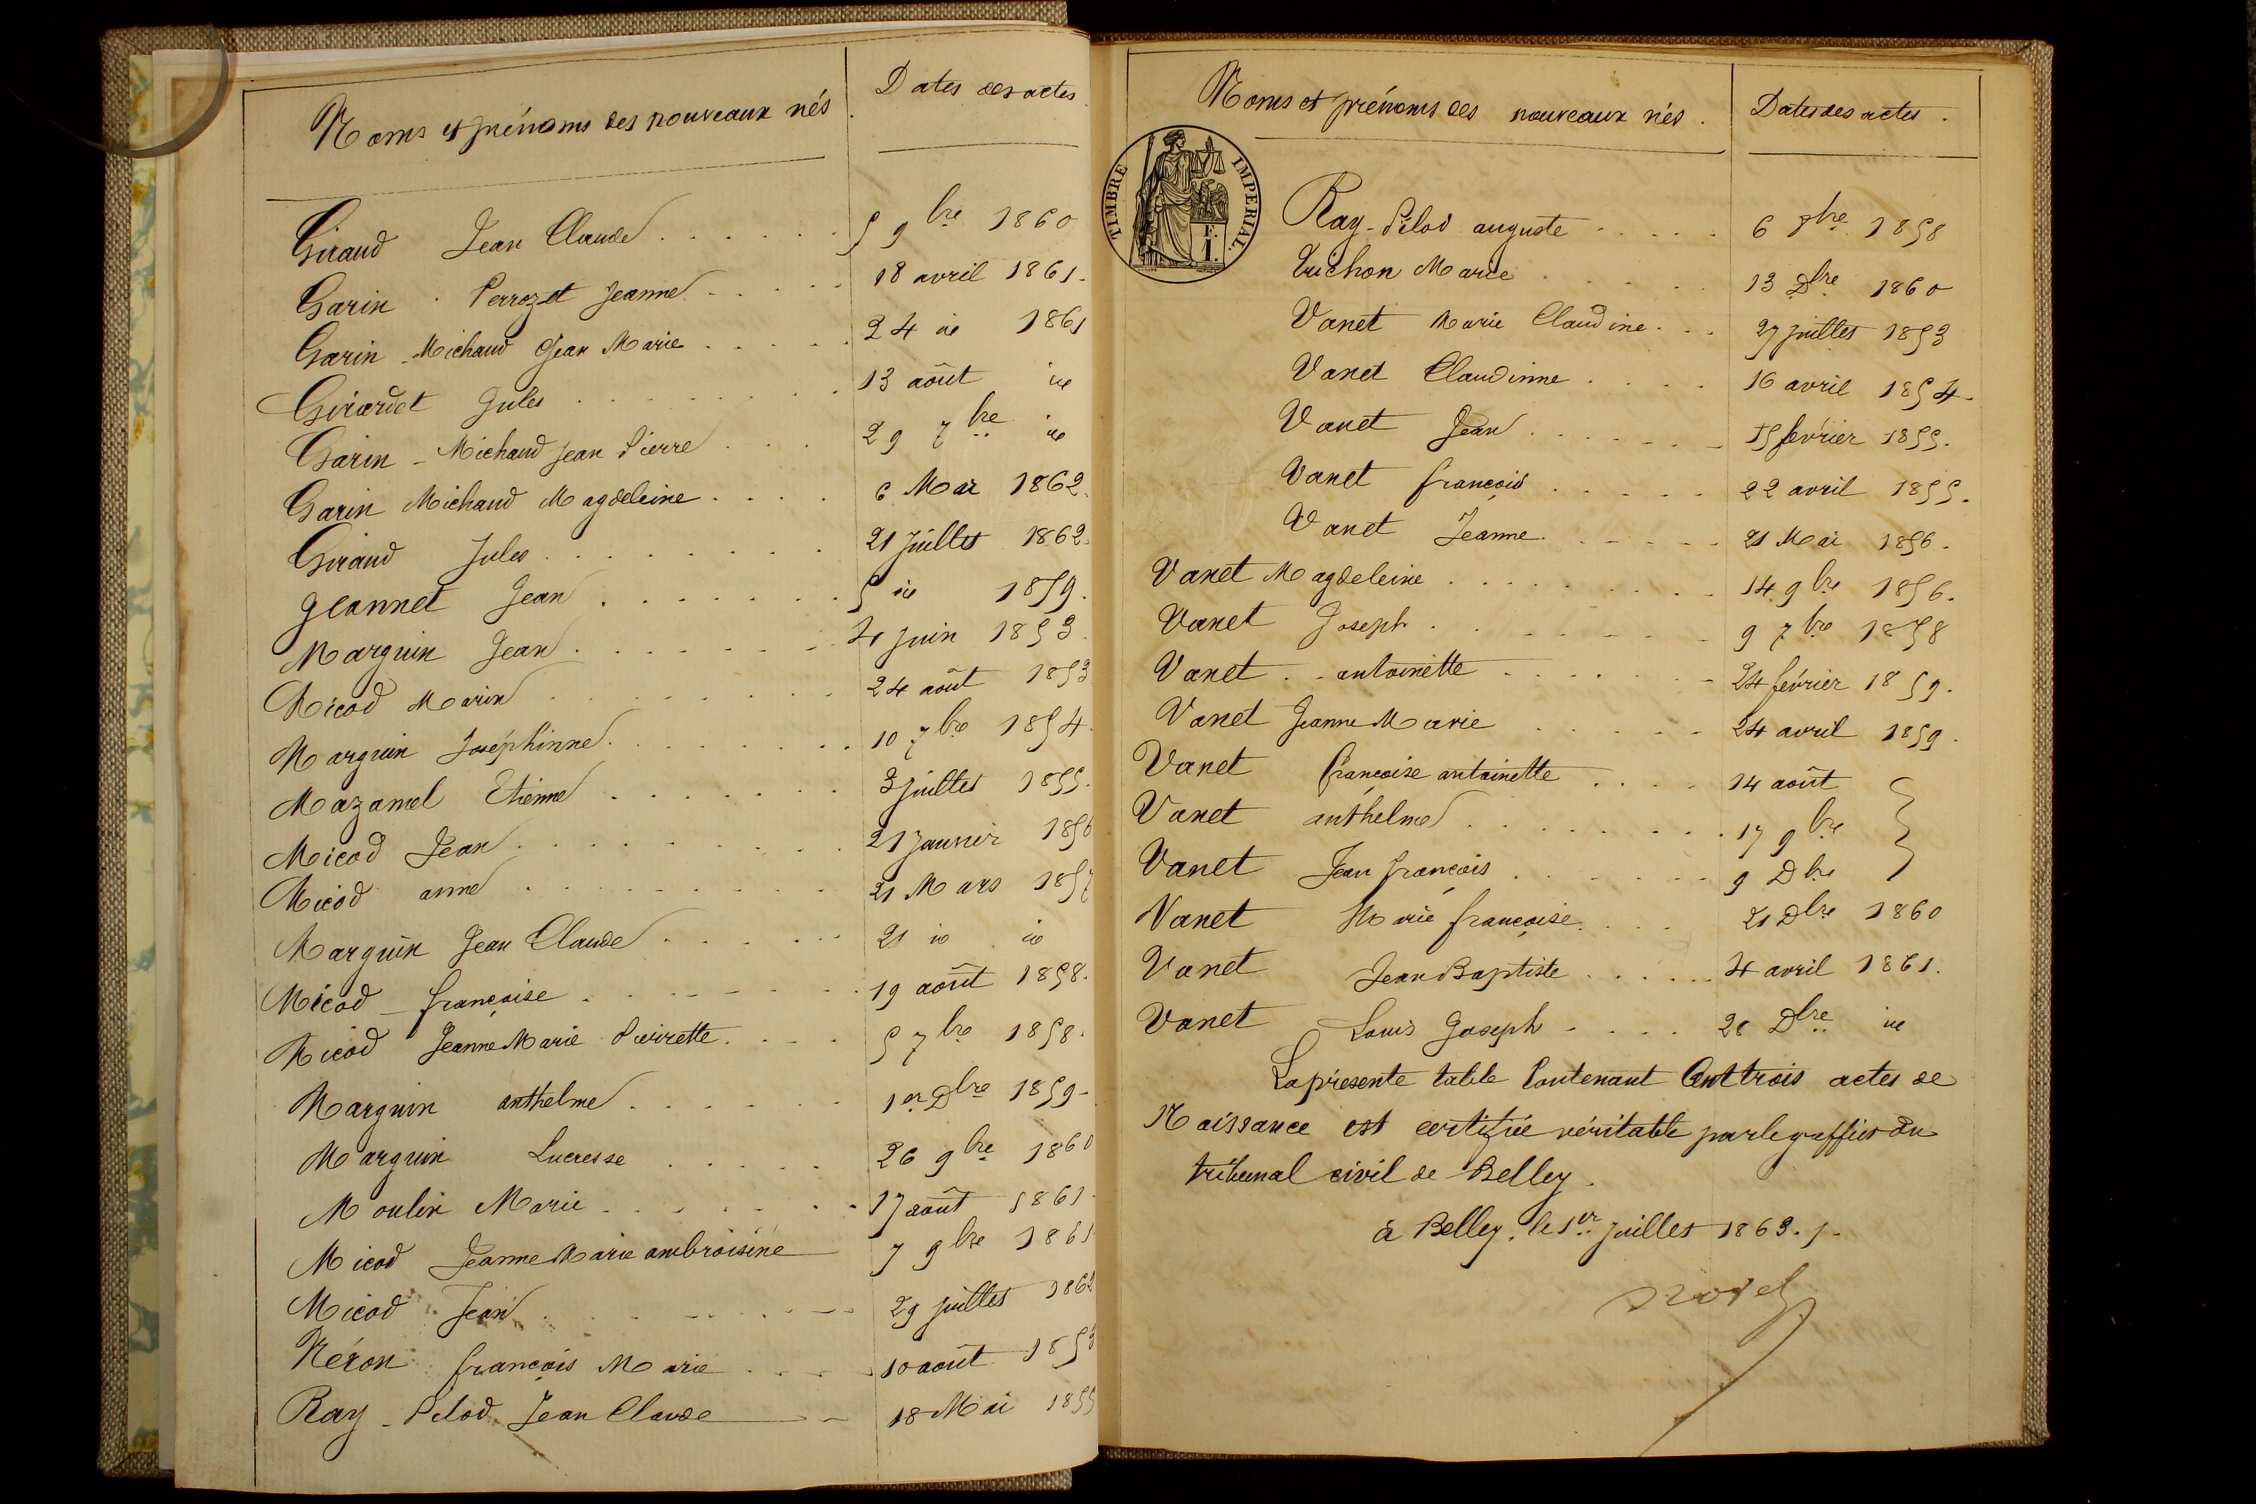 Noms et prénoms des nouveaux nés
Dates des actes
Giraud Jean Claude 5 9bre 1860
Garin Perrozet Jeanne 18 avril 1861
Garin Michaud Jean Marie 24 id 1861
Girardet Jules 13 août id
Garin - Michaud Jean Pierre 29 7bre id
Garin Michaud Magdeleine 6 Mai 1862
Giraud Jules 21 Juillet 1862
Jeannet Jean 5 id 1859
Marguin Jean 4 Juin 1853
Micod Marin 24 août 1853
Marguin Joséphinne 10 7bre 1854
Mazamel Etienne 3 juillet 1855
Micod Jean 21 Janvier 1856
Micod anne 21 Mars 1857
Marguin Jean Claude 21 id id
Micod - françoise 19 août 1858
Micod Jeanne Marie Pierrette 5 7bre 1858
Marguin anthelme 1er Dbre 1859
Marguin Lucresse 26 9bre 1860
Moulin Marie 17 août 1861
Micod Jeanne Marie ambroisine 7 9bre 1861
Micod Jean 29 juillet 1862
Néron françois Marie 10 août
Ray - Pelod Jean Claude 18 Mai 1855
Noms et prénoms des nouveaux nés.
Dates des actes.
TIMBRE IMPERIAL.
F.
1.
Ray - Pelod auguste 6 1858
Luchon Marie 13 Dbre 1860
Vanet Marie Claudine 27 juillet 1853
Vanet Claudinne 16 avril 1854
Vanet Jean 15 février 1855.
Vanet françois 22 avril 1855.
Vanet Jeanne 21 Mai 1856.
Vanet Magdeleine 14 9bre 1856.
Vanet Joseph 9 7bre 1858
Vanet antoinette 24 février 1859.
Vanet Jeanne Marie 24 avril 1859.
Vanet françoise antoinette 14 août
Vanet anthelme 17 9bre
Vanet Jean françois 9 Dbre
Vanet Marie françoise 21 Dbre 1860
Vanet Jean Baptiste 4 avril 1861.
Vanet Louis Joseph 28 Dbre id
La présente table Contenant Cent trois actes de
Naissance est certifiée véritable par le greffier du
tribunal civil de Belley.
à Belley, le 1er juillet 1863.